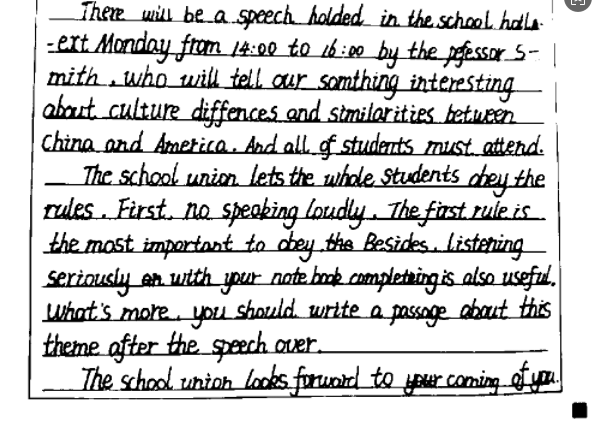 There will be a speech holded in the school hall.
-ext Monday from 14:00 to 16:00 by the pefessor S-
mith, who will tell our somthing interesting
about culture diffences and similarities between
China and America. And all of students must attend.
The school union lets the whole students obey the
rules. First, no speaking loudly. The first rule is
the most important to obey. the Besides, listening
seriously on with your note book completeing is also useful.
What's more, you should write a passage about this
theme after the speech over.
The school union looks forward to your coming of you.